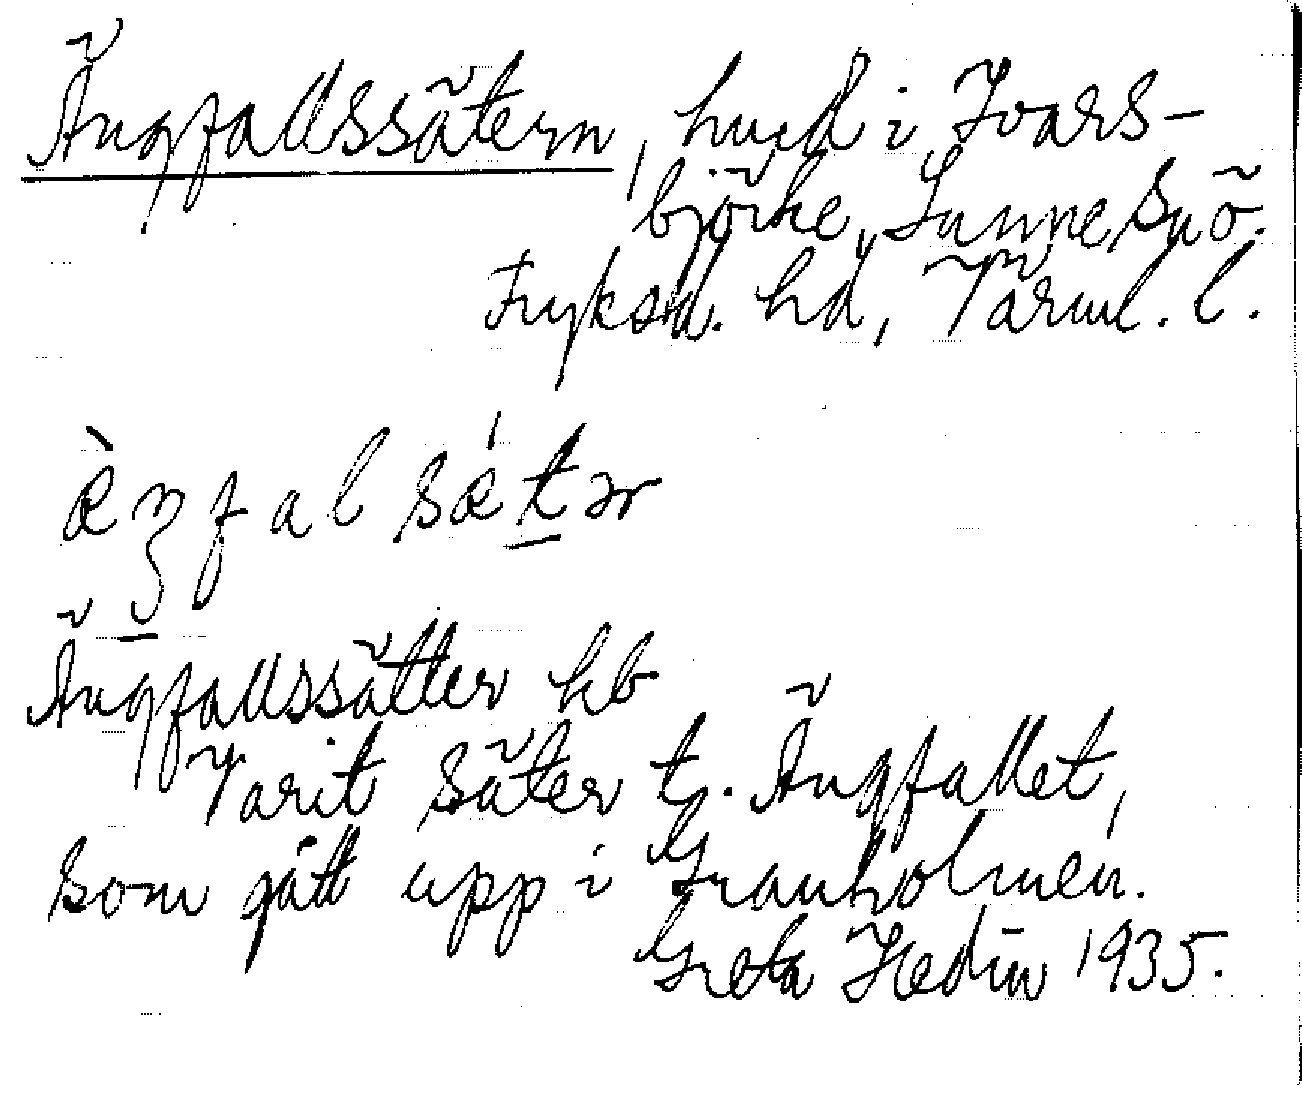 Ängfallssätern, hmd i Ivars-
björke, Sunne sn ö.
Fryksd. hd, Värml. l.
æ̀ŋfalsǽtər
Ängfallssätter hb.
Varit säter t. Ängfallet,
som gått upp i Granholmen.
Greta Hedin 1935.